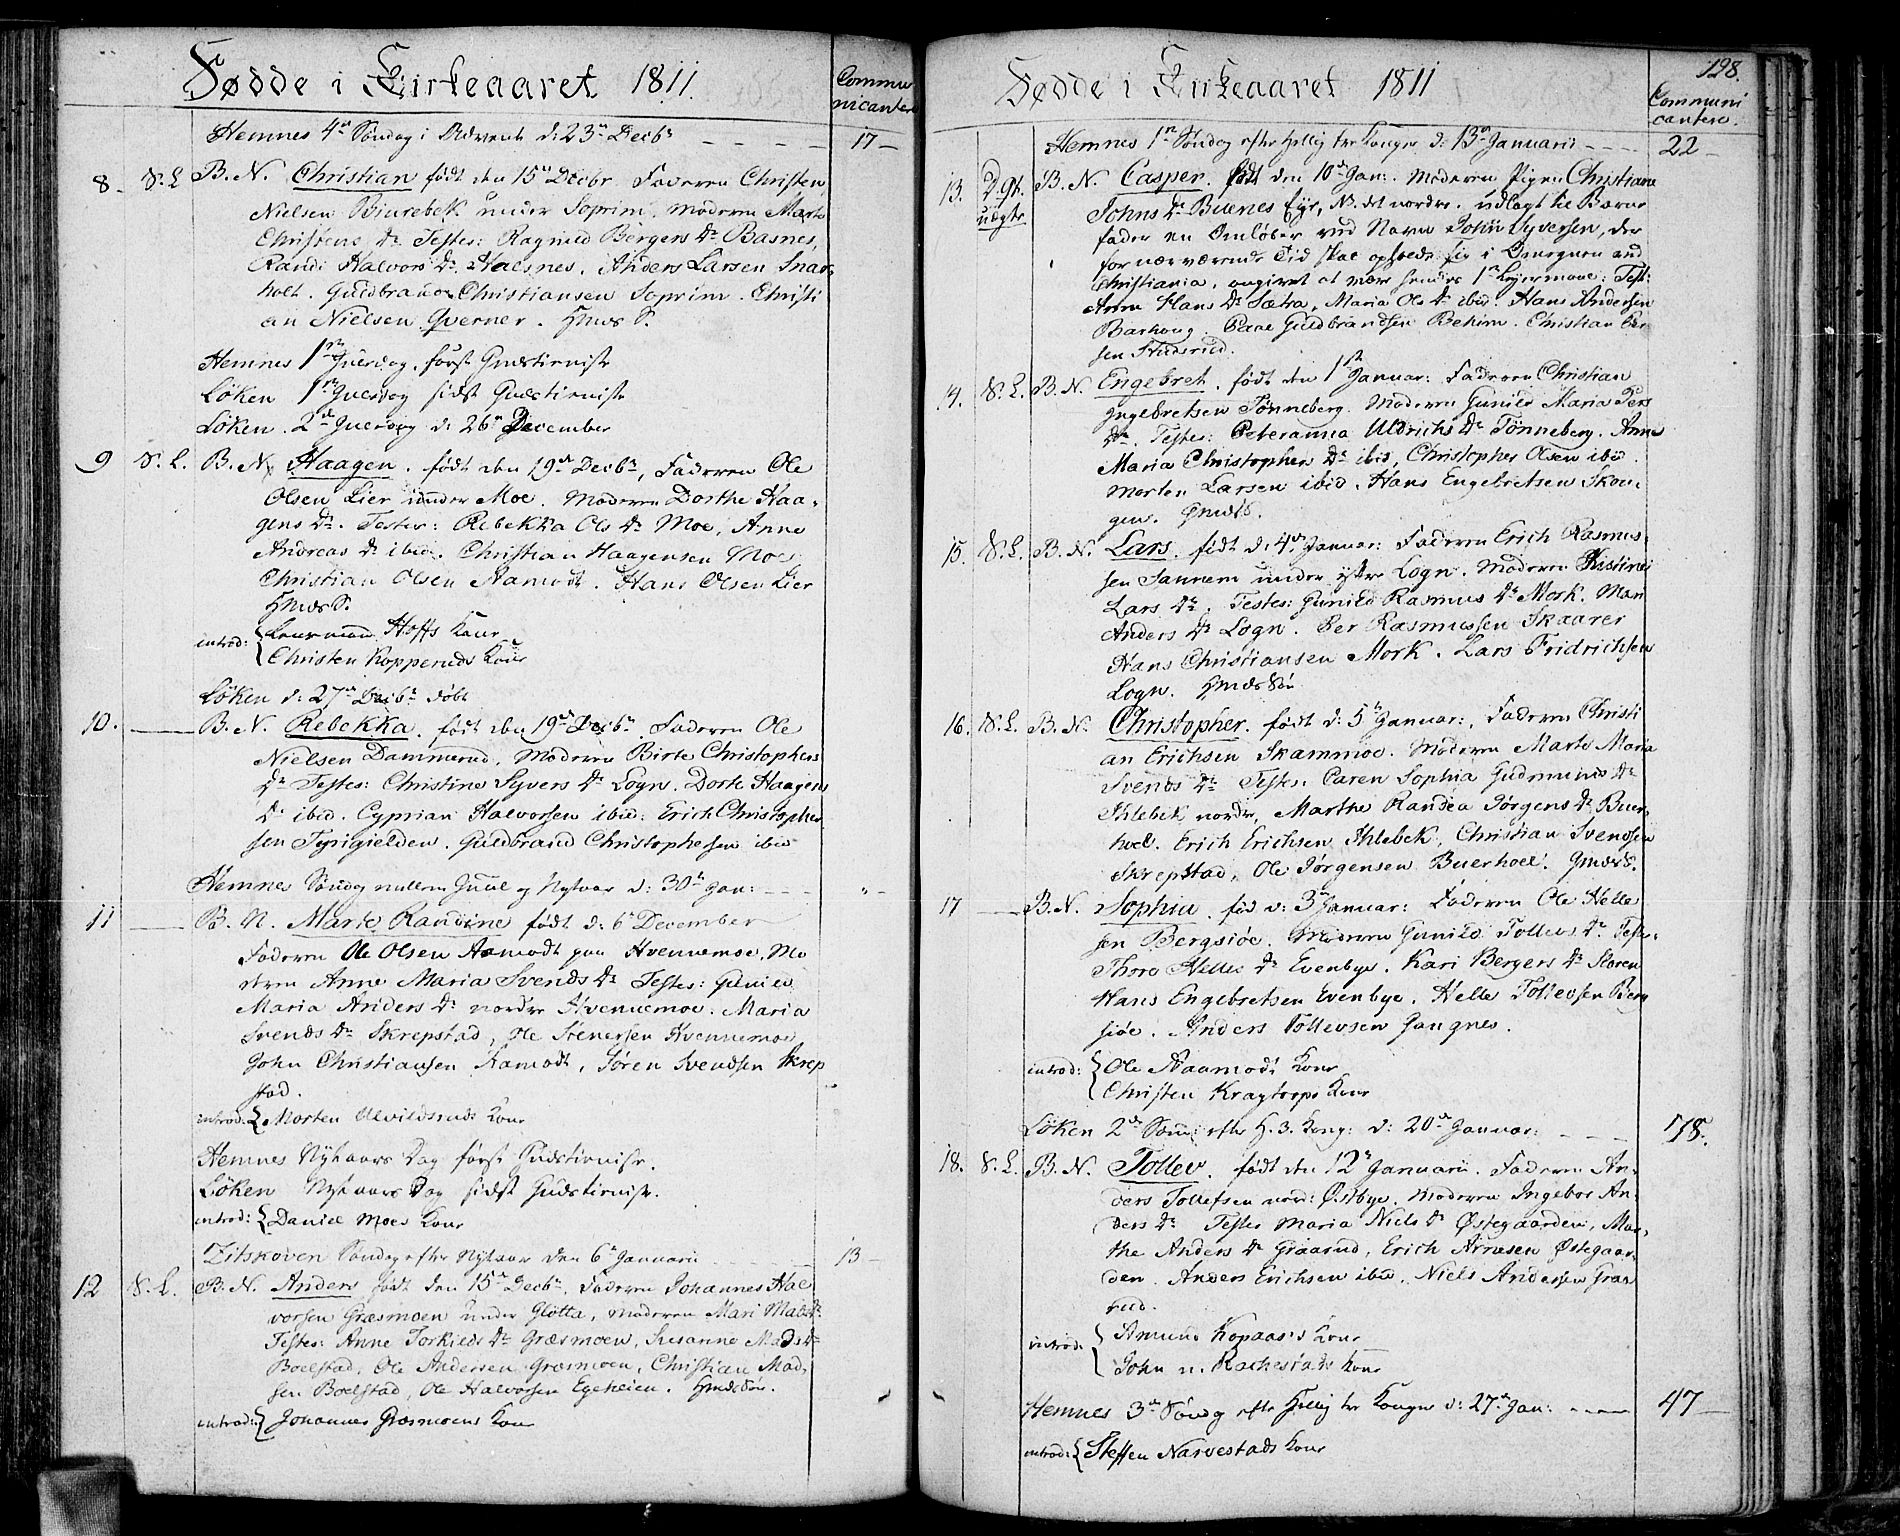 Fødde i Kirkeaaret 1811.
Communicantere
Hemnes 4de Søndag i Advent d: 23de Decbr - - - - 17 -
8. S. L. B. N. Christian født den 15de Decbr Faderen Christen
Nielsen Biurebek under Soprim. Moderen Marte
Christens Dr. Testes: Ragnild Bergers Dr Basnes,
Randi Halvors Dr Haesnes. Anders Larsen Snar
holt. Guldbrand Christiansen Soprim. Christi
an Nielsen Qverner.
Hemnes 1ste Juledag, først Gudstieniste
Löken 1ste Juledag sidst Gudstieniste
Löken 2den Juledag d: 26de December
9 S. L. B. N. Haagen. født den 19de Decbr, Faderen Ole
Olsen Lier under Moe. Moderen Dorthe Haa-
gens Dr. Testes: Rebekka Ols Dr Moe, Anne
Andreas Dr ibid. Christian Haagensen Moe
Christian Olsen Aamodt. Hans Olsen Lier
introd: { Hoffs Kone
Christen Kopperuds Kone
Löken d: 27de Decbr døbt
10. B. N. Rebekka. født den 19de Decbr. Faderen Ole
Nielsen Dammerud, Moderen Birte Christophers
Dr Testes: Christine Syvers Dr Logn. Dorte Haagens
Dr ibid. Cyprian Halvorsen ibid: Erich Christopher
sen Tyrigielden. Guldbrand Christophersen ibid
Hemnes Søndag mellem Juul og Nytaar d: 30te Jan: - - -
11 B. N. Marte Randine født d: 6te December
Faderen Ole Olsen Aamodt paa Hvennemoe, Mo
deren Anne Maria Svends Dr Testes: Gunild
Maria Anders Dr nordre Hvennemoe. Maria
Svends Dr Skrepstad, Ole Stenersen Hvennemoe
John Christiansen Aamodt, Søren Svendsen Skrep
stad.
introd: { Morten Ulvildsruds Kone
Hemnes Nytaars Dag først Gudstieniste.
Löken Nytaars Dag sidst Gudstieniste.
introd: { Daniel Moes Kone
Zitskoven Søndag efter Nytaar den 6te Januarii 13 -
12 S. L. B. N. Anders født den 15de Decbr, Faderen Johannes Hal
vorsen Græsmoen under Glotta, Moderen Mari Mads Dr.
Testes: Anne Torkields Dr Græsmoen, Susanne Mads Dr
Boelstad, Ole Andersen Græsmoen, Christian Mad-
sen Boelstad, Ole Halvorsen Egeheien.
introd: { Johannes Græsmoens Kone
Fødde i Kirkeaaret 1811
198.
Communi
cantere.
Hemnes 1ste Søndag efter Hellig tre Konger d: 13de Januarii - - - 22 -
13. D. gk. B. N. Casper. født den 10de Jan: Moderen Pigen Christiane
uægte Johns Dr Buenes Eye, No. det nordre. udlagt til Barne
fader en Omløber ved Navn John Syversen, der
for nærværende Tid skal opholde sig i Omegnen ved
Christiania, angivet at være hendes 1ste Leiermaal: Test:
Anne Hans Dr Sætra, Maria Ols Dr ibid. Hans Andersen
Barhoug. Paal Guldbrandsen Behim. Christian Per
sen Studsrud.
4. S. L. B. N. Engebret. født den 1ste Januar: Faderen Christian
Ingebretsen Tønneberg. Moderen Gunild Maria Pers
Dr. Testes: Peteranna Uldrichs Dr Tønneberg. Anne
Maria Christophers Dr ibid, Christopher Olsen ibid.
Morten Larsen ibid. Hans Engebretsen Skou-
gen.
15. S. L. B. N. Lars. født d: 4de Januar: Faderen Erich Rasmus-
sen Sannem under ytre Logn. Moderen Kistine
Lars Dr. Testes: Gunild Rasmus Dr Mork. Mari
Anders Dr Logn. Per Rasmussen Skaarer
Hans Christiansen Mork. Lars Fridrichsen
Logn.
16. S. L. B. N. Christopher. født d: 5te Januar:, Faderen Christi
an Erichsen Skammoe. Moderen Marte Maria
Svends Dr Testes. Caren Sophia Gudmunds Dr
Ihlebek nordre, Marthe Randea Jørgens Dr Buer-
hoel. Erich Erichsen Ihlebek, Christian Svendsen
Skrepstad, Ole Jørgensen Buerhoel.
17 B. N. Sophia. fød d: 3de Januar: Faderen Ole Helle
sen Bergsiøe. Moderen Gunild Tollevs Dr Testes.
Thore Helles Dr Evenbye. Kari Bergers Dr Sloren
Hans Engebretsen Evenbye. Helle Tollevsen Berg
siøe. Anders Tollevsen Gangnes.
introd: { Ole Aaamodts Kone
Christen Kragtorps Kone
Löken 2den Sønd: efter H. 3. Kong: d: 20de Januar: - - - 78.
18. S. L. B. N. Tollev. født den 12te Januarii. Faderen An-
ders Tollefsen nord: Østbye. Moderen Ingebor An-
ders Dr Testes Maria Niels Dr Østegaarden, Mar-
the Anders Dr Graarud, Erich Arnesen Østegaar-
den. Anders Erichsen ibid. Niels Andersen Graa
rud.
introd: { Amund Kopaas's Kone
John n. Rackestads Kone
Hemnes 3de Søndag efter Hellig tre Konger d: 27de Jan: - - - 47 -
introd: { Steffen Narvestads Kone